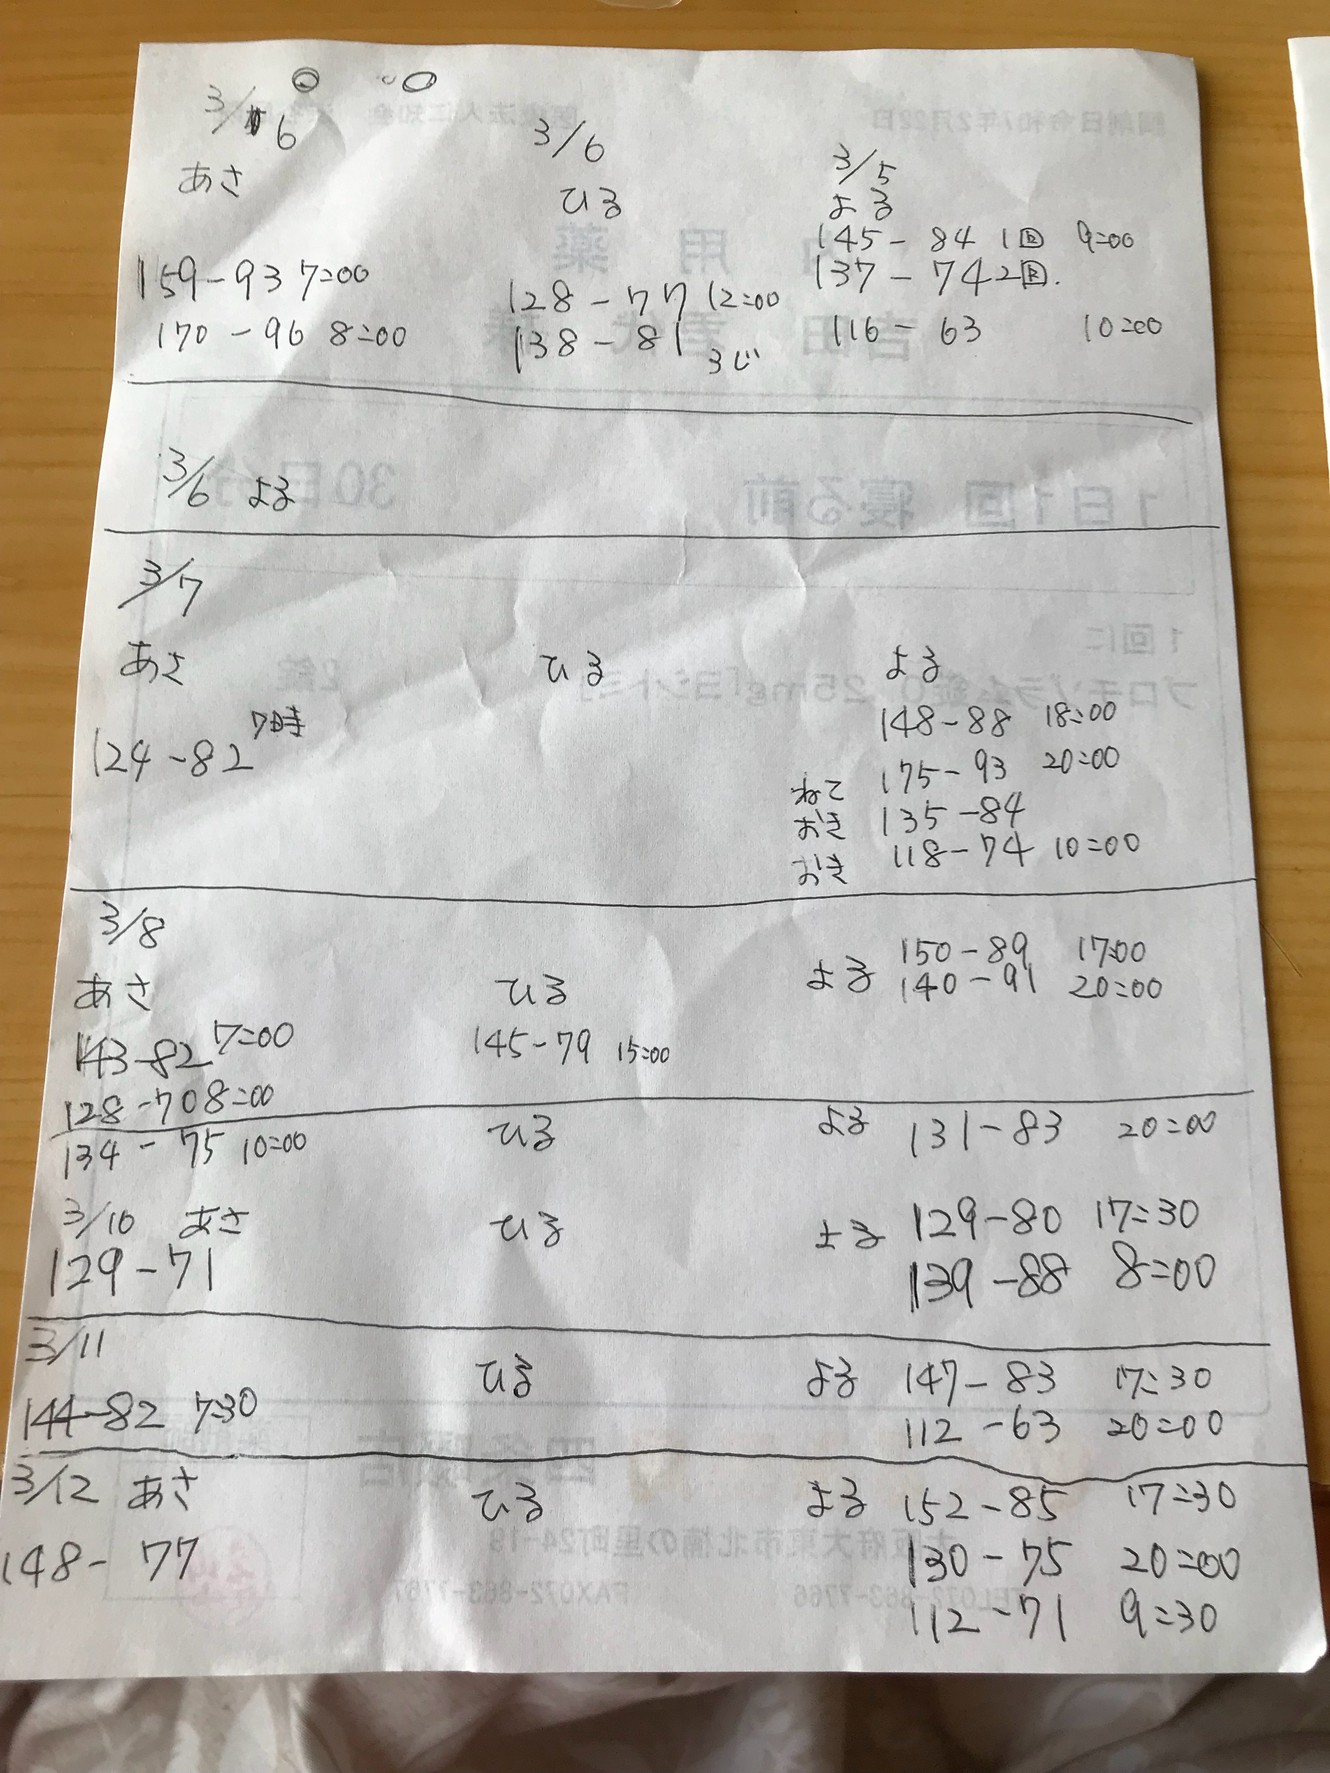 3/6
あさ
159-93 7=00
170-96 8=00
3/6
ひる
128-77 12=00
138-81 3じ
3/5
よる
145-84 1回 9=00
137-74 2回.
116-63 10=00
3/6 よる
3/7
あさ
124-82 7時
ひる
よる
148-88 18=00
175-93 20=00
ねて
おき 135-84
おき 118-74 10=00
3/8
あさ
143-82 7=00
128-70 8=00
ひる
145-79 15=00
よる 150-89 17=00
140-91 20=00
134-75 10=00
ひる
よる 131-83 20=00
3/10 あさ
129-71
ひる
よる 129-80 17=30
139-88 8=00
3/11
144-82 7=30
ひる
よる 147-83 17=30
112-63 20=00
3/12 あさ
148-77
ひる
よる 152-85 17=30
130-75 20=00
112-71 9=30
調剤日令和7年2月22日
内用薬
1日1回 寝る前
30日分
1回に
2錠
四条畷店
大阪府大東市北楠の里町24-19